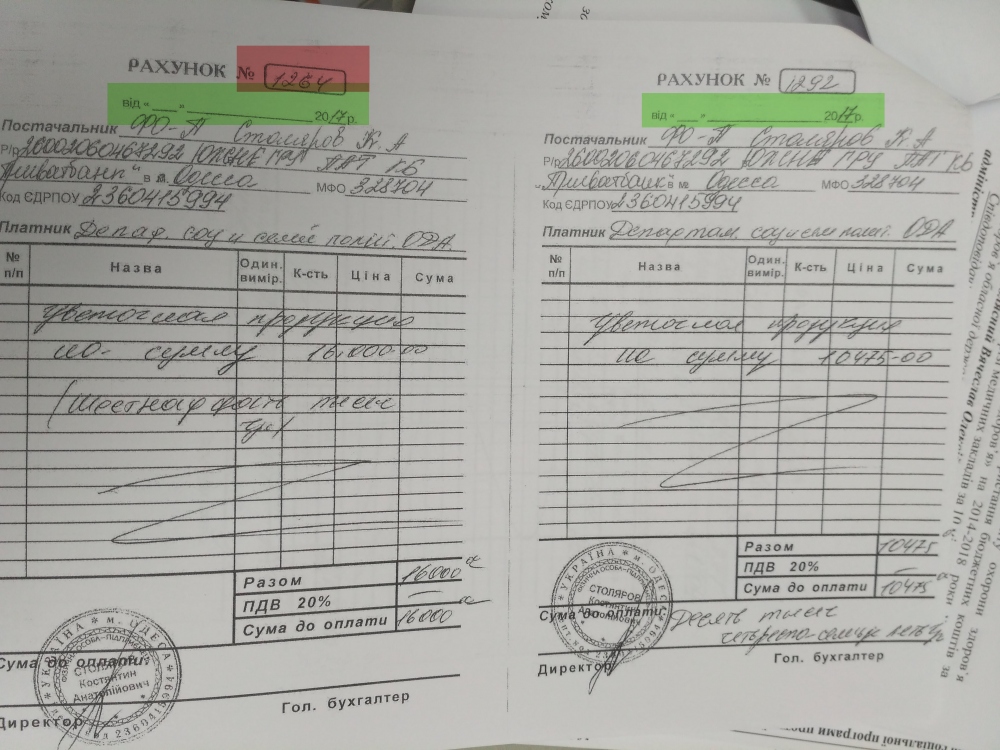 РАХУНОК № 1264
від « » 2017 р.
Постачальник ФО-П Столяров К. А
Р/р 26002060467292 ЮЖНЕ ГРУ ПАТ КБ
"Приватбанк" в м. Одесса МФО 328704
Код ЄДРПОУ 2360415994
Платник Депар. соц и семей политі. ОДА.
№ п/п Назва Один. вимір. К-сть Ціна Сума
Цветочная продукция
на сумму 16.000-00
(Шестнадцать тысяч
гр)
Разом 16000
ПДВ 20% —
Сума до оплати 16000
Сума до оплати:
Директор Гол. бухгалтер
УКРАЇНА * м. ОДЕСА
СТОЛЯРОВ
Костянтин
Анатолійович
РАХУНОК № 1292
від « » 2017 р.
Постачальник ФО-П Столяров К. А
Р/р 26002060467292 ЮЖНЕ ГРУ ПАТ КБ
"Приватбанк" в м. Одесса МФО 328704
Код ЄДРПОУ 2360415994
Платник Департам. соц и сем полит. ОДА
№ п/п Назва Один. вимір. К-сть Ціна Сума
Цветочная продукция
на сумму 10475-00
Разом 10475
ПДВ 20% —
Сума до оплати 10475
Сума до оплати: Десять тысяч
четыреста семьдес пять гр
Директор Гол. бухгалтер
УКРАЇНА * м. ОДЕСА
СТОЛЯРОВ
Костянтин
Анатолійович
медичних закладів за 10
на 2014-2018 роки
бюджетних коштів за
охорони здоров'я